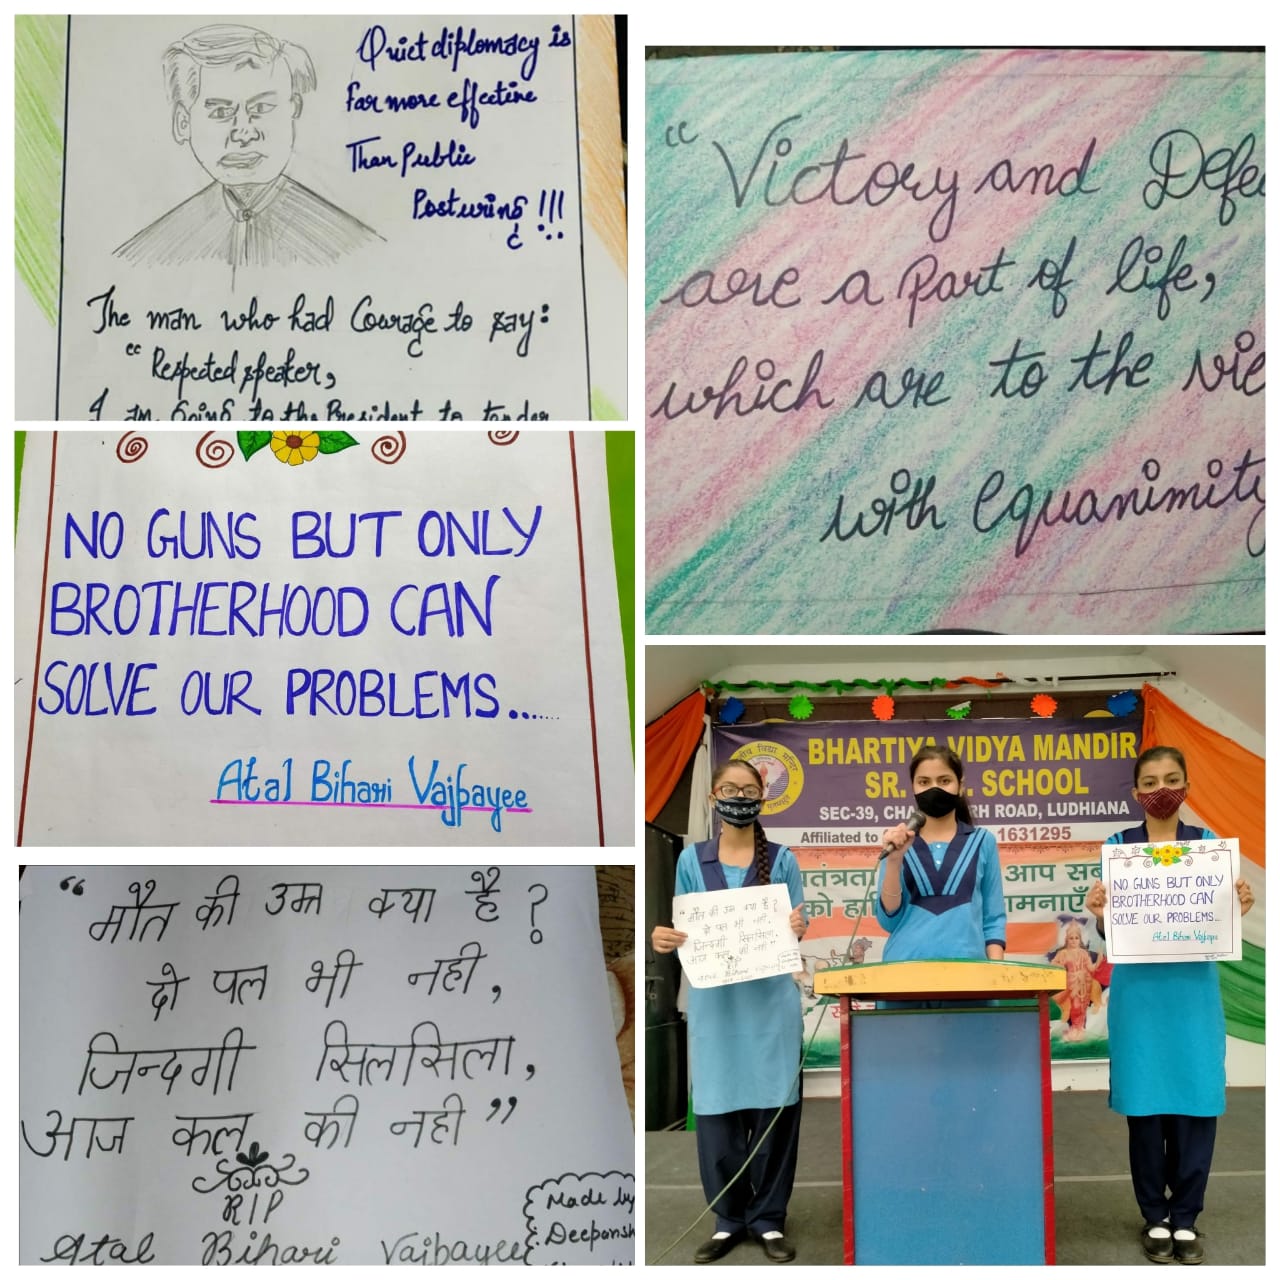 Quiet diplomacy is
far more effective
Than Public
Posturing !!!
The man who had Courage to say:
“Respected speaker,
I am Going to the President to tender
NO GUNS BUT ONLY
BROTHERHOOD CAN
SOLVE OUR PROBLEMS.......
Atal Bihari Vajpayee
“मौत की उम्र क्या है ?
दो पल भी नही,
जिन्दगी सिलसिला,
आज कल की नही”
RIP
Atal Bihari Vajpayee
Made by
Deepansh
“Victory and Defe
are a part of life,
which are to the vie
with equanimity
BHARTIYA VIDYA MANDIR
SR. SCHOOL
SEC-39, ROAD, LUDHIANA
Affiliated to 1631295
आप सब
को
“मौत की उम्र क्या है ?
दो पल भी नही,
जिन्दगी सिलसिला,
आज कल की नही”
RIP
Atal Bihari Vajpayee
NO GUNS BUT ONLY
BROTHERHOOD CAN
SOLVE OUR PROBLEMS...
Atal Bihari Vajpayee